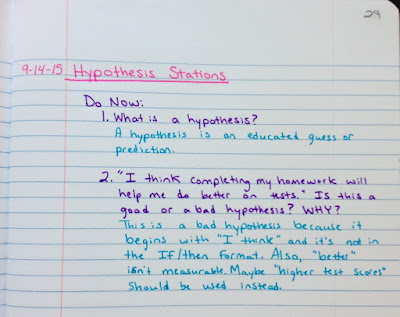 29
9-14-15 Hypothesis Stations
Do Now:
1. What is a hypothesis?
A hypothesis is an educated guess or
prediction.
2. "I think completing my homework will
help me do better on tests." Is this a
good or a bad hypothesis? WHY?
This is a bad hypothesis because it
begins with "I think" and it's not in
the If/then format. Also, "better"
isn't measurable. Maybe "higher test scores"
should be used instead.